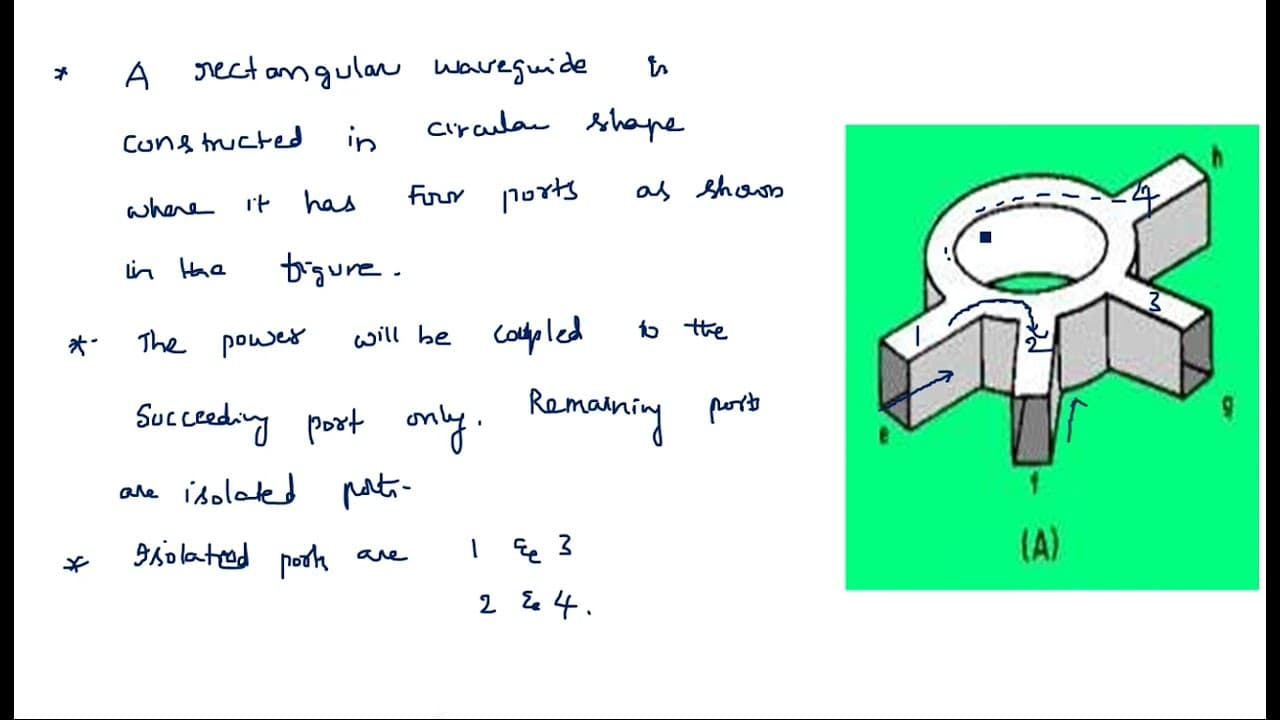 * A rectangular waveguide is
constructed in circular shape
where it has Four ports as shown
in the figure.
*- The power will be coupled to the
Succeeding port only. Remaining ports
are isolated ports-
* Isolated ports are 1 & 3
2 & 4.
h
4
3
1
2
e
g
f
(A)